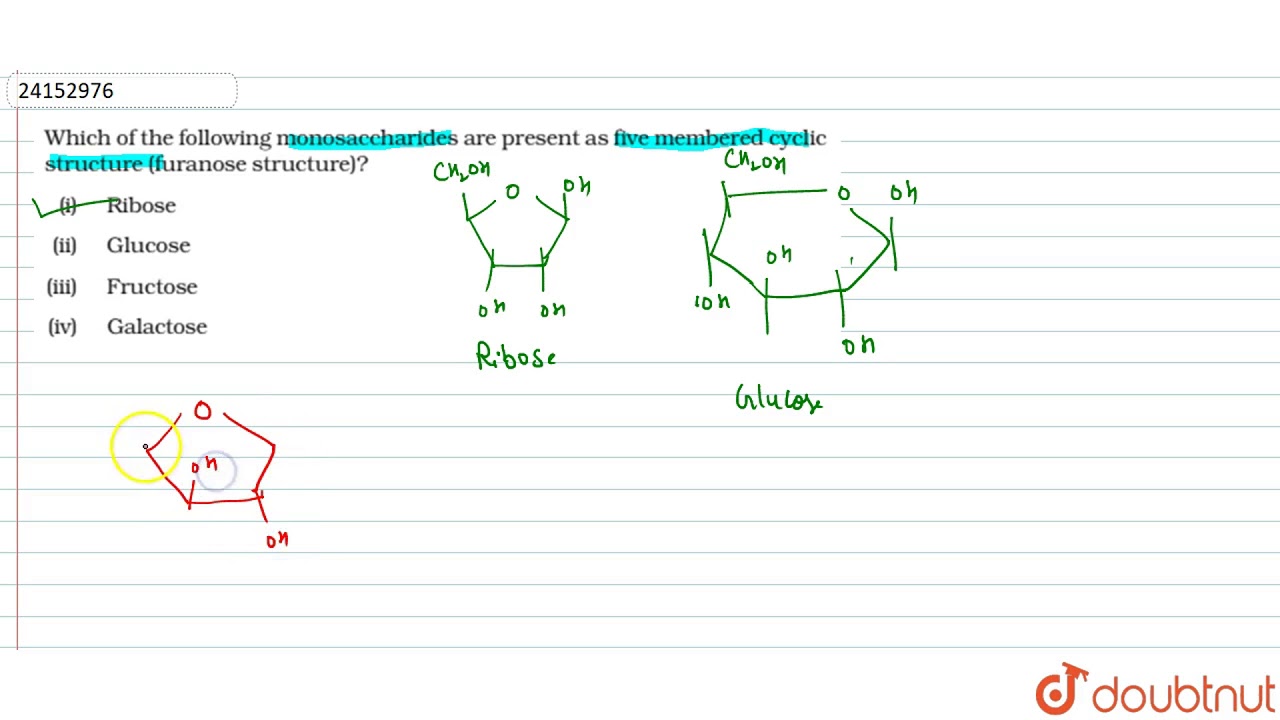 24152976
Which of the following monosaccharides are present as five membered cyclic
structure (furanose structure)?
(i) Ribose
(ii) Glucose
(iii) Fructose
(iv) Galactose
CH₂OH
O
OH
OH
OH
Ribose
CH₂OH
O
OH
OH
OH
OH
Glucose
O
OH
OH
doubtnut